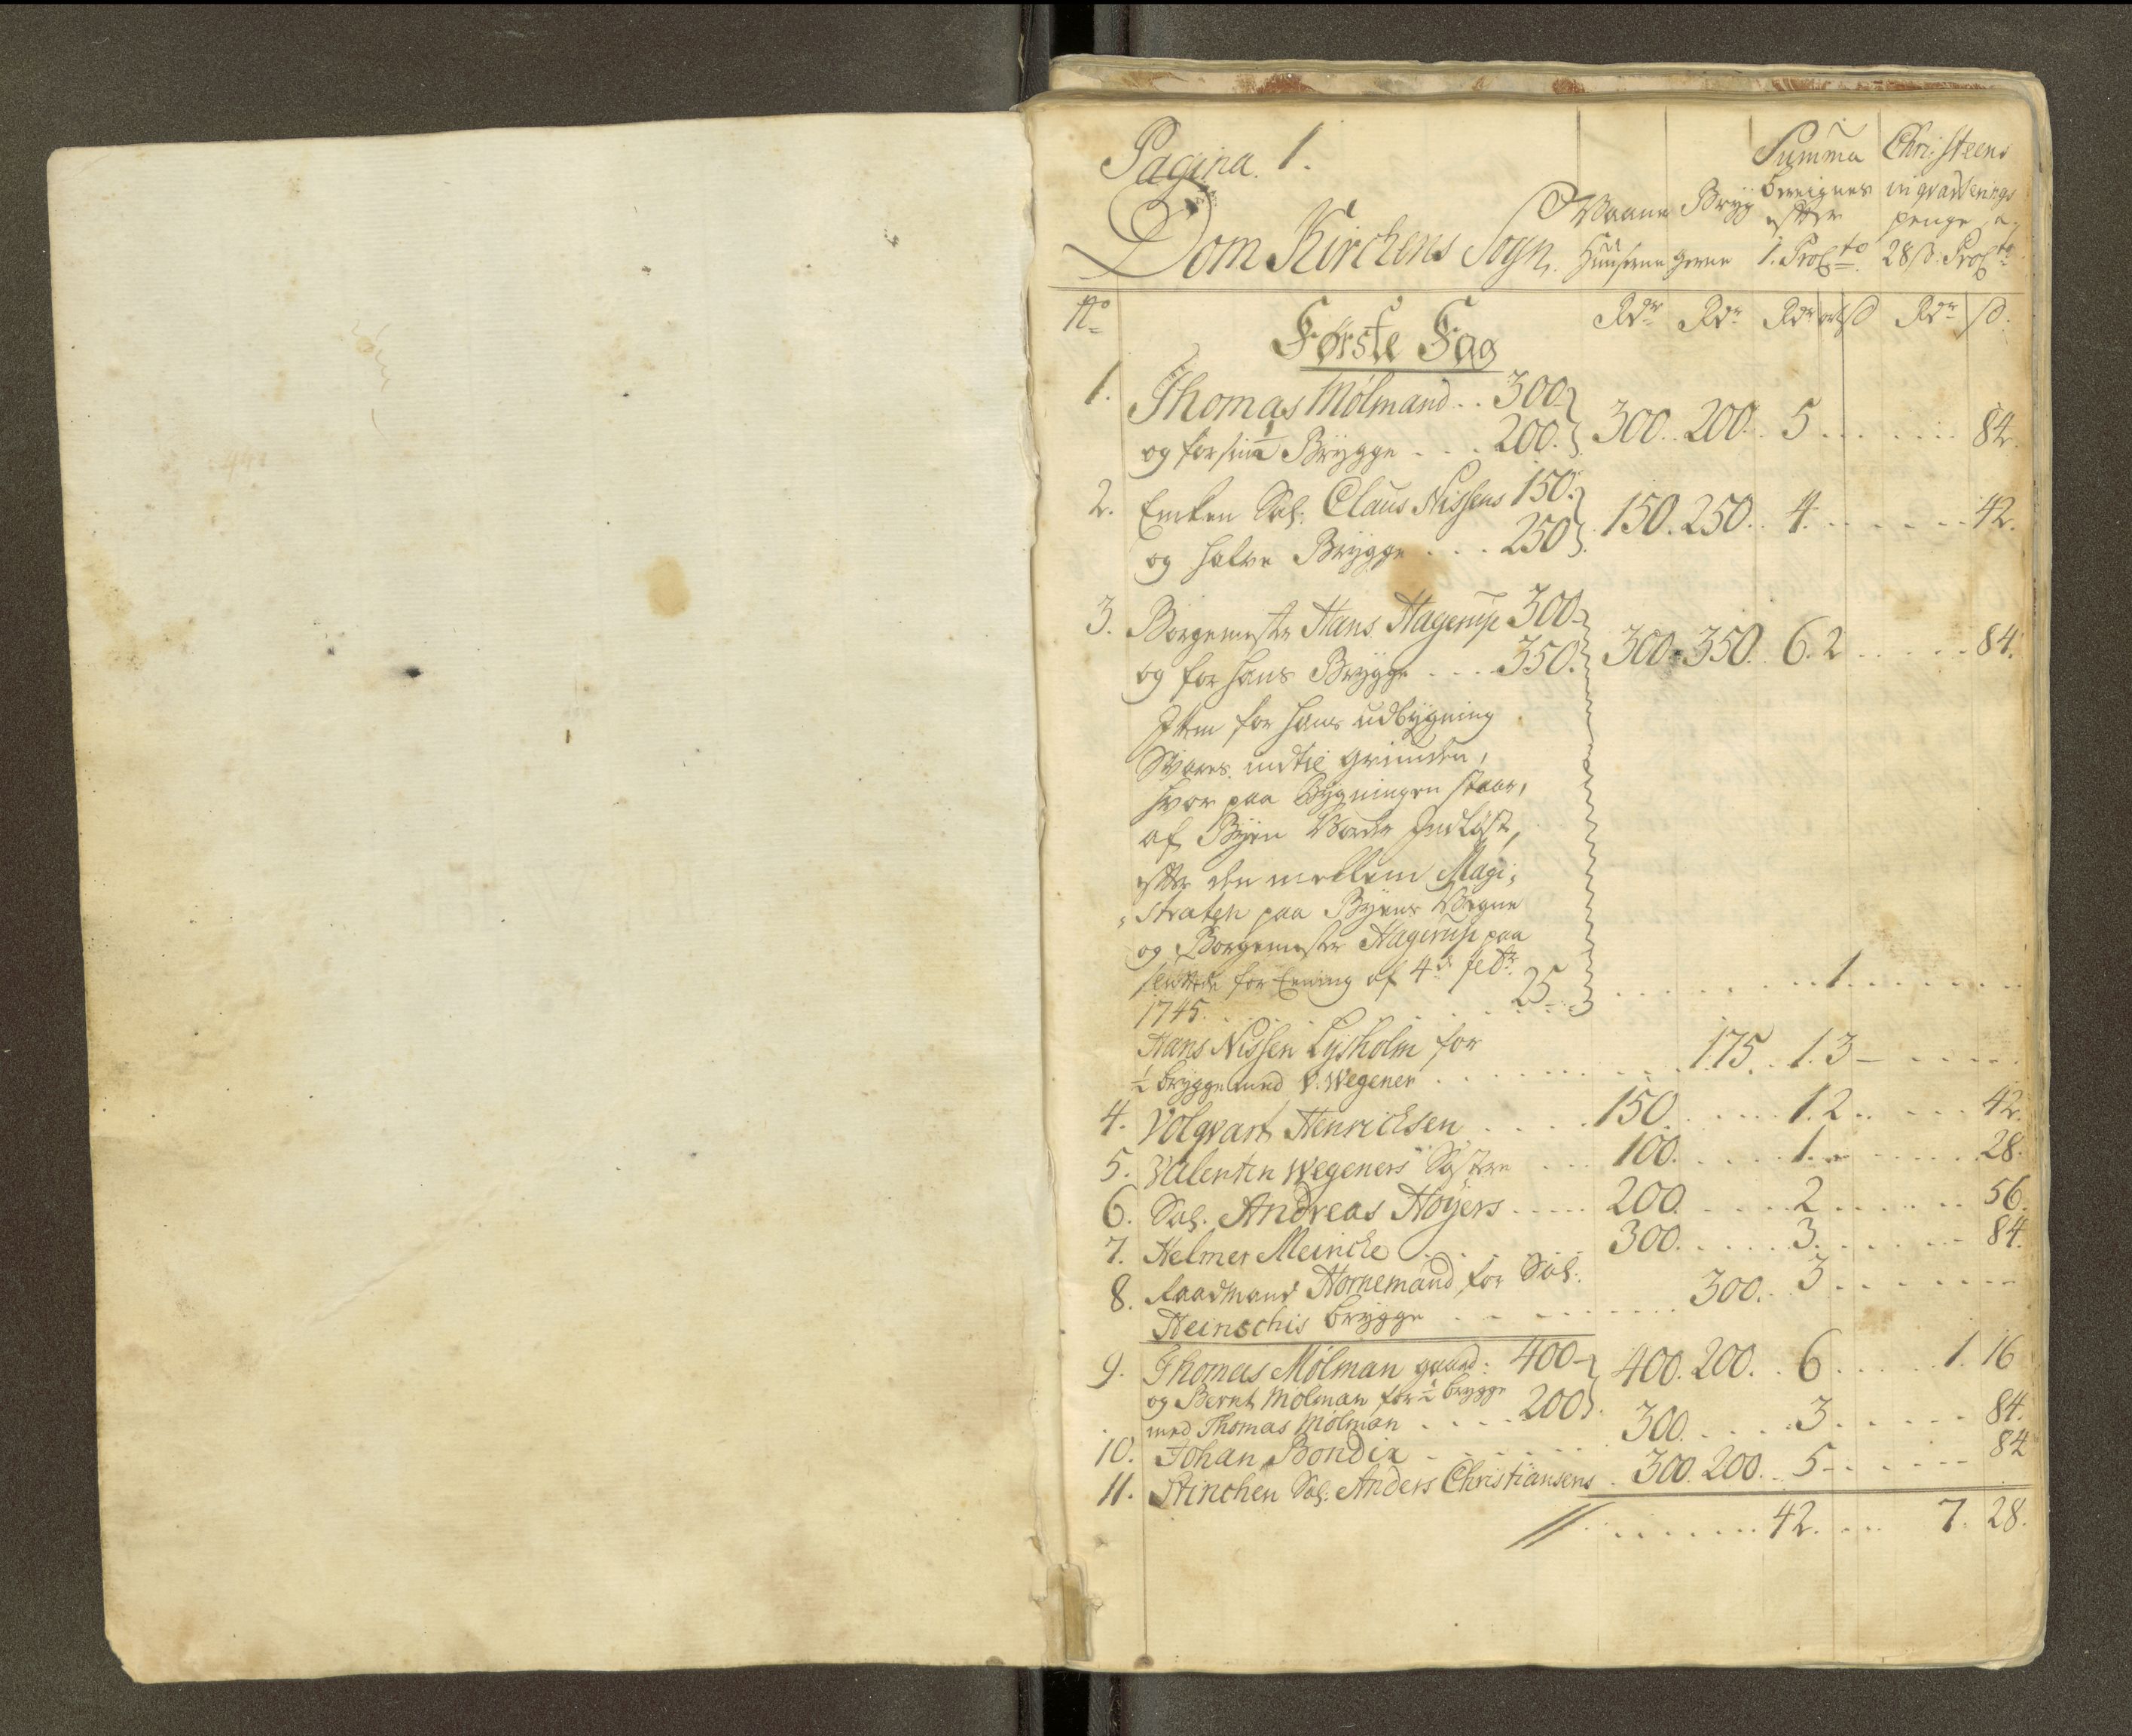 Pagina. 1.
Dom Kirchens Sogn.
Vaane Huuserne
Bryg gerne
Summa
efter
1. Proc^to
penge a
28 ß. Proc^to
N^o
Første Fag
Rd^r Rd^r Rd^r ort ß Rd^r ß.
1. Thomas Mølmand .. 300 300. 200. 5 84.
og for sin ½ Brygge . . . 200.
2. Enken Sal. Claus Nissens 150. 150. 250. 4. 42.
og halve Brygge . . . 250
3. Borgemester Hans Hagerup 300 300. 350. 6. 2 84.
og for hans Brygge . . . 350.
Item for hans udbygning
Svares indtil grunden,
hvor paa Bygningen staar,
af Byen Vorder Indløst,
efter den mellem Magi-
straten paa Byens Vegne
og Borgemester Hagerup paa
forening af 4^de feb^r
1745. . . . 25 1
Hans Nissen Lysholm for
½ brygge med V. Wegener . . . 175. 1. 3
4. Volqvart Henrichsen . . . 150. 1. 2 42.
5. Valentin Wegeners Søstre . . . 100. 1. 28.
6. Sal. Andreas Høyers . . . 200. 2 56.
7. Helmer Meincke . . . 300. 3. 84.
8. Raadmand Hornemand for Sal.
Heinschis brygge . . . 300. 3
9. Thomas Mølman gaard: 400 400. 200. 6 1. 16
og Bernt Mølman for ½ brygge
med Thomas Mølman . . . 200
10. Johan Bondix . . . 300. 3 84.
11. Stinchen Sal. Anders Christiansens . 300. 200. 5 84
42. 7. 28.